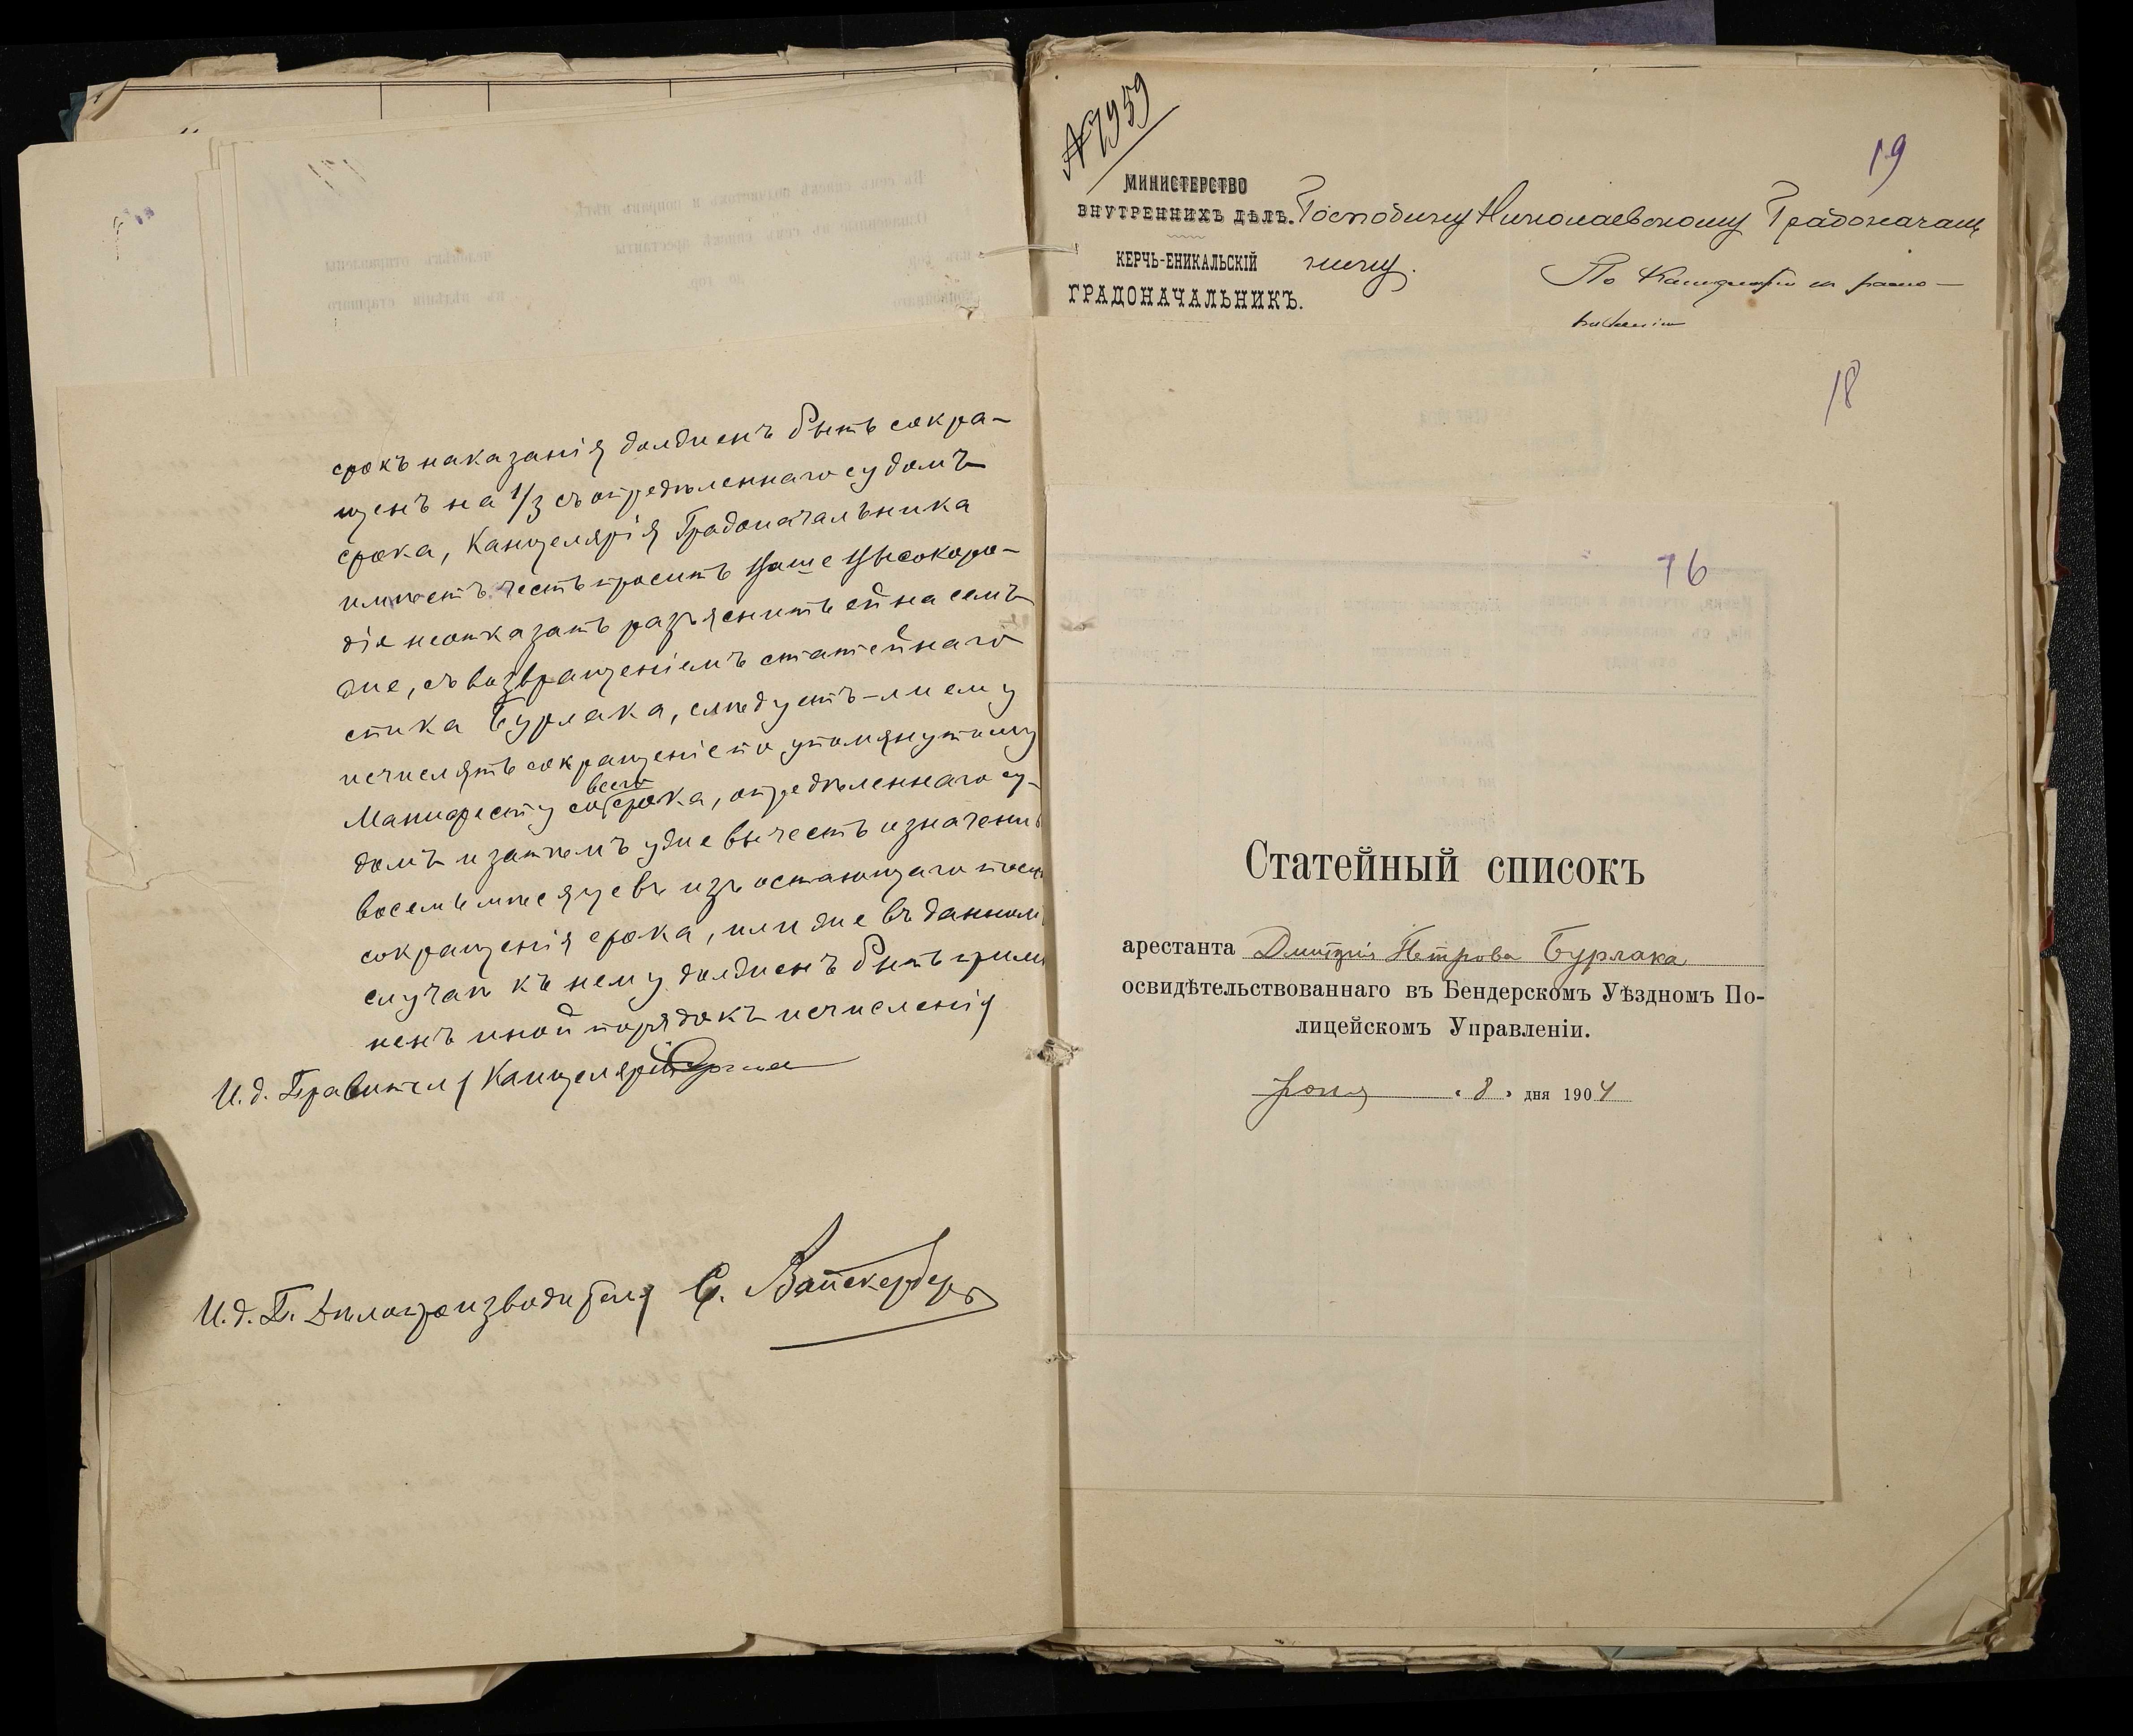 срокъ наказанія долженъ быть сокра-
щенъ на 1/3 съ опредѣленнаго судомъ
срока, Канцелярія Градоначальника
имѣетъ честь просить Ваше Высокоро-
діе не отказать разъяснить ей на семъ
же, съ возвращеніемъ статейнаго
списка Бурлака, слѣдуетъ-ли ему
исчислять сокращеніе по упомянутому
Манифесту со всего срока, опредѣленнаго су-
домъ и затѣмъ уже вычесть означенные
восемь мѣсяцевъ изъ остающагося послѣ
сокращенія срока, или же въ данномъ
случаѣ къ нему долженъ быть примѣ
ненъ иной порядокъ исчисленія
И.д. Правителя Канцеляріи
И.д. Дѣлопроизводителя С. Вайскерберъ
№ 7959
19
МИНИСТЕРСТВО
ВНУТРЕННИХЪ ДѢЛЪ.
КЕРЧЬ-ЕНИКАЛЬСКІЙ
ГРАДОНАЧАЛЬНИКЪ.
Господину Николаевскому Градоначаль
нику.
По
18
16
Статейный списокъ
арестанта Дмитрія Петрова Бурлака
освидѣтельствованнаго въ Бендерскомъ Уѣздномъ По-
лицейскомъ Управленіи.
„ 8 „ дня 1904